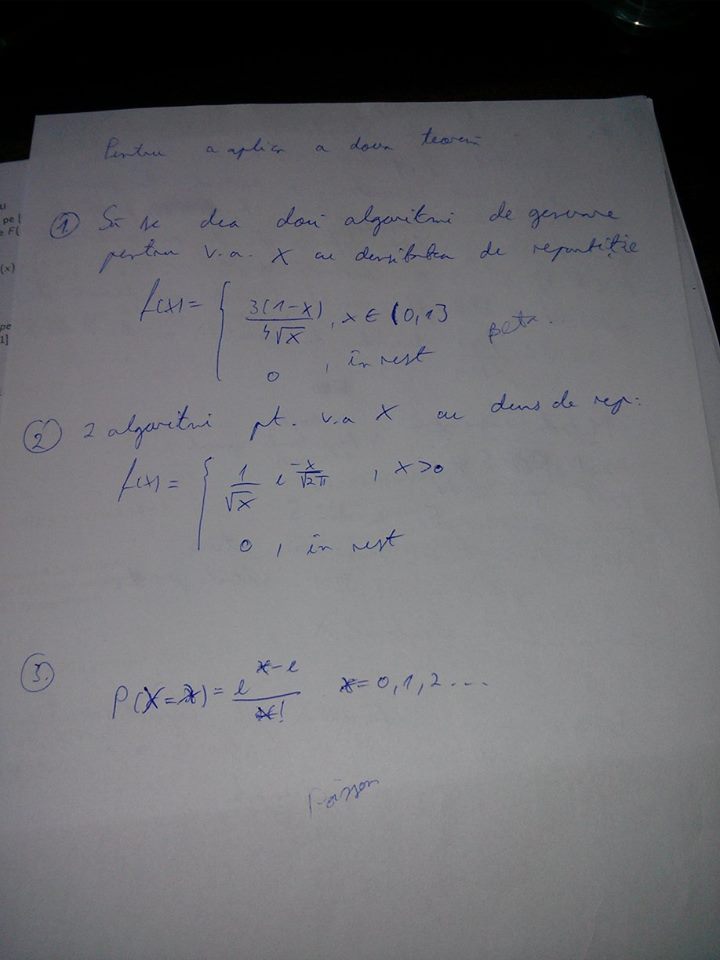 Pentru a aplica a doua teoremă
① Să se dea doi algoritmi de generare
pentru v.a. X cu densitatea de repartiție
f(x) = { 3(1-x)/4√x , x ∈ (0,1]
beta.
0 , în rest
② 2 algoritmi pt. v.a X cu dens de rep:
f(x) = { 1/√x e^(-x/√2π) , x>0
0 , în rest
③. P(X=x) = e^(x-e)/x! x=0,1,2....
Poisson
pe [
F(
(x)
pe
1]